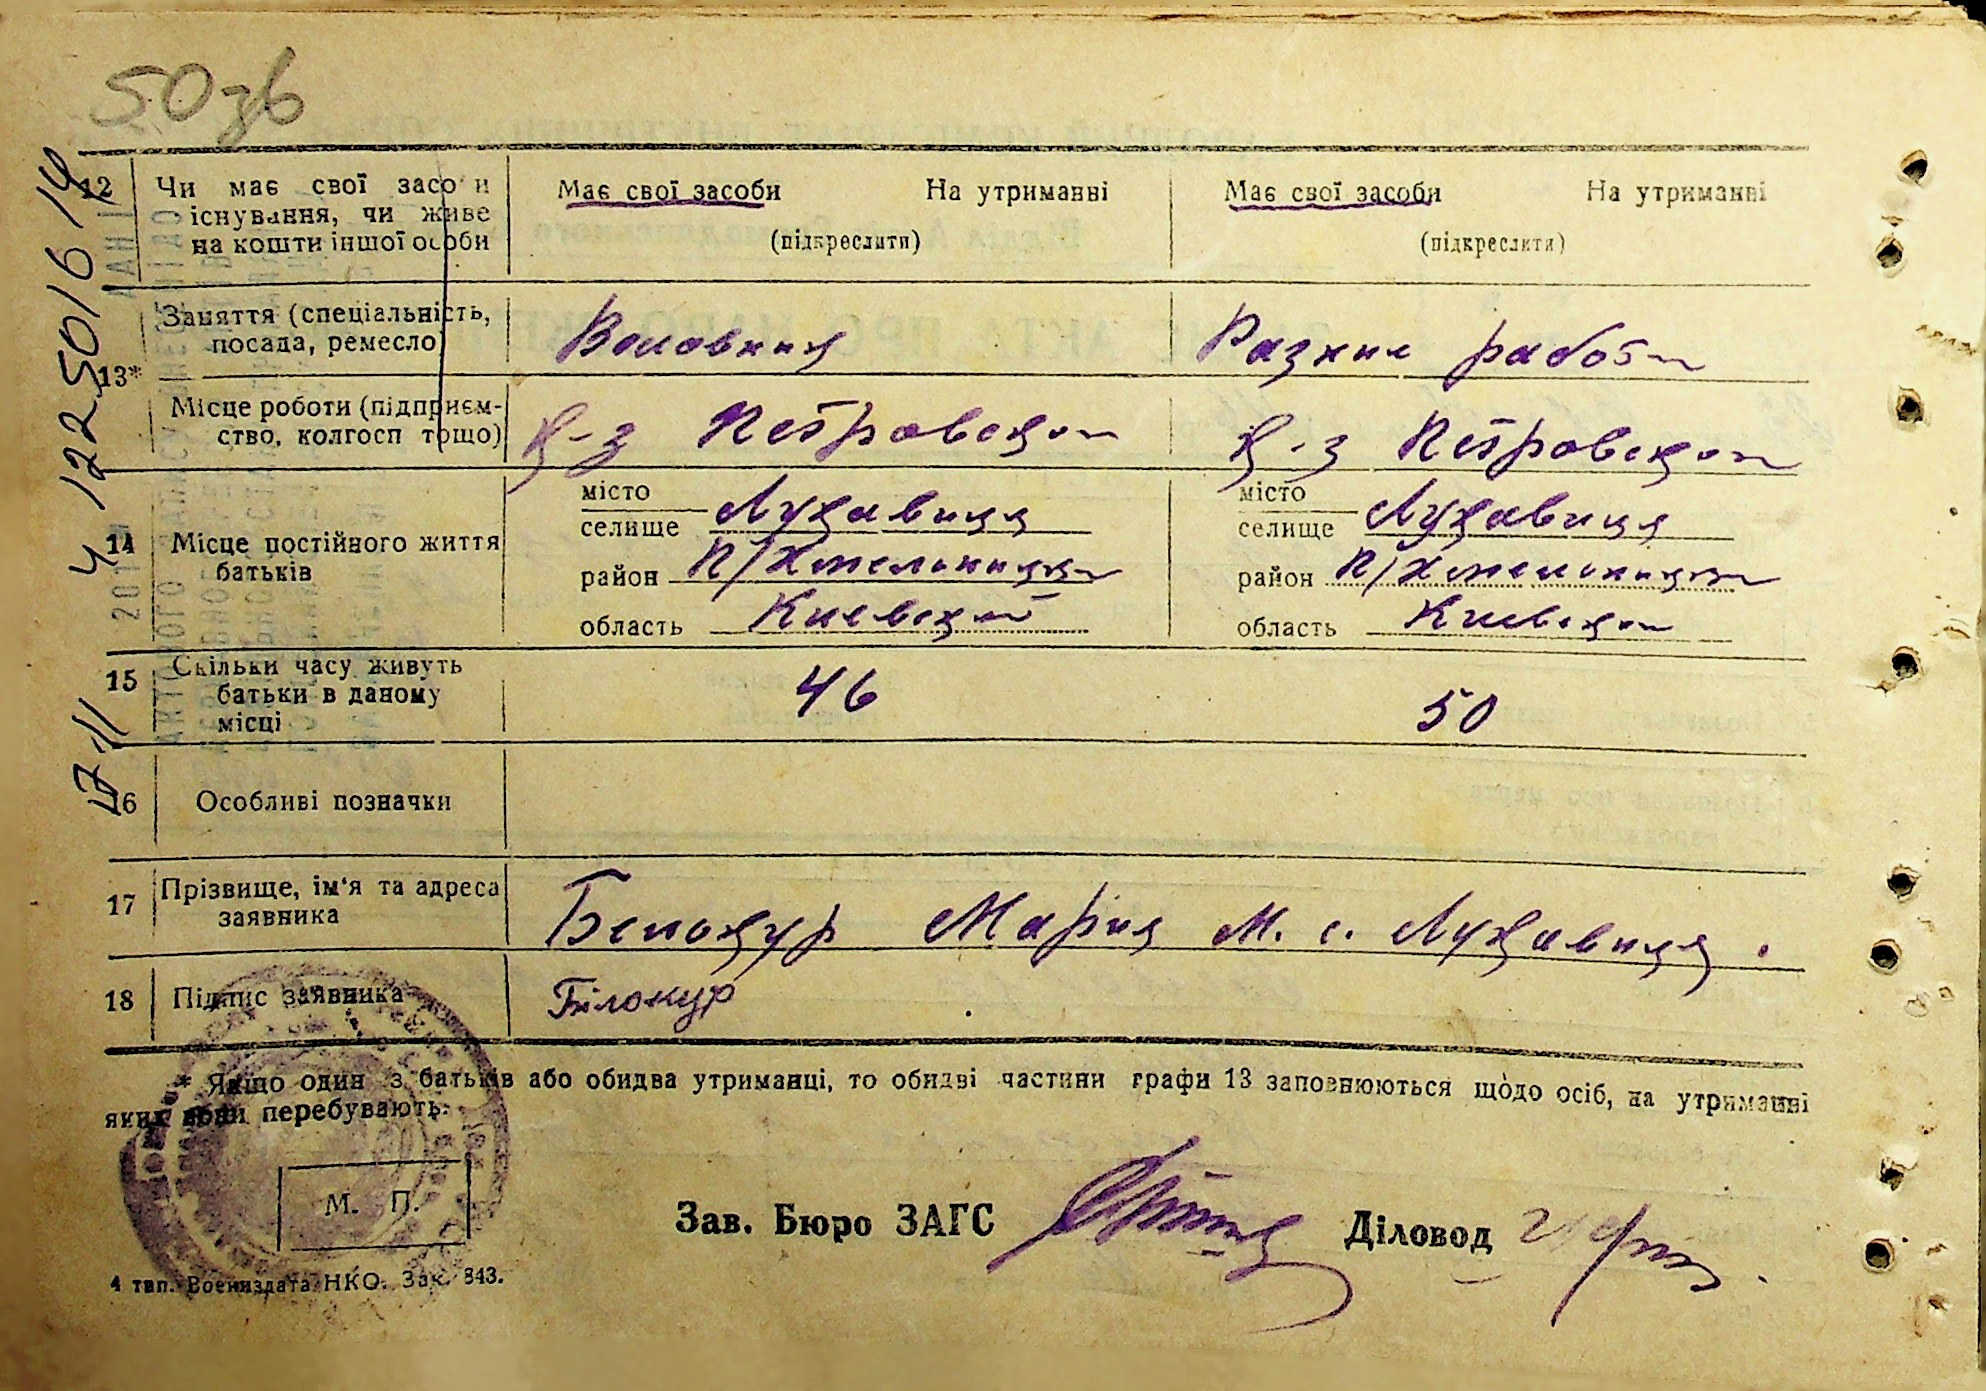 50зв
12 Чи має свої засоби Має свої засоби На утриманні Має свої засоби На утриманні
існування, чи живе
на кошти іншої особи (підкреслити) (підкреслити)
Заняття (спеціальність,
посада, ремесло) Воловник Разные работы
13*
Місце роботи (підприєм-
ство, колгосп тощо) К-з Петровского К-з Петровского
місто місто
селище Лукавиця селище Лукавиця
14 Місце постійного життя
батьків район П/Хмельницкий район П/Хмельницкий
область Киевской область Киевской
15 Скільки часу живуть
батьки в даному 46 50
місці
16 Особливі позначки
17 Прізвище, ім'я та адреса
заявника Белокур Мария М. с. Лукавиця.
18 Підпис заявника Білокур
* Якщо один з батьків або обидва утриманці, то обидві частини графи 13 заповнюються щодо осіб, на утриманні
яких вони перебувають.
М. П.
Зав. Бюро ЗАГС Діловод
4 тип. Воениздата НКО. Зак. 843.